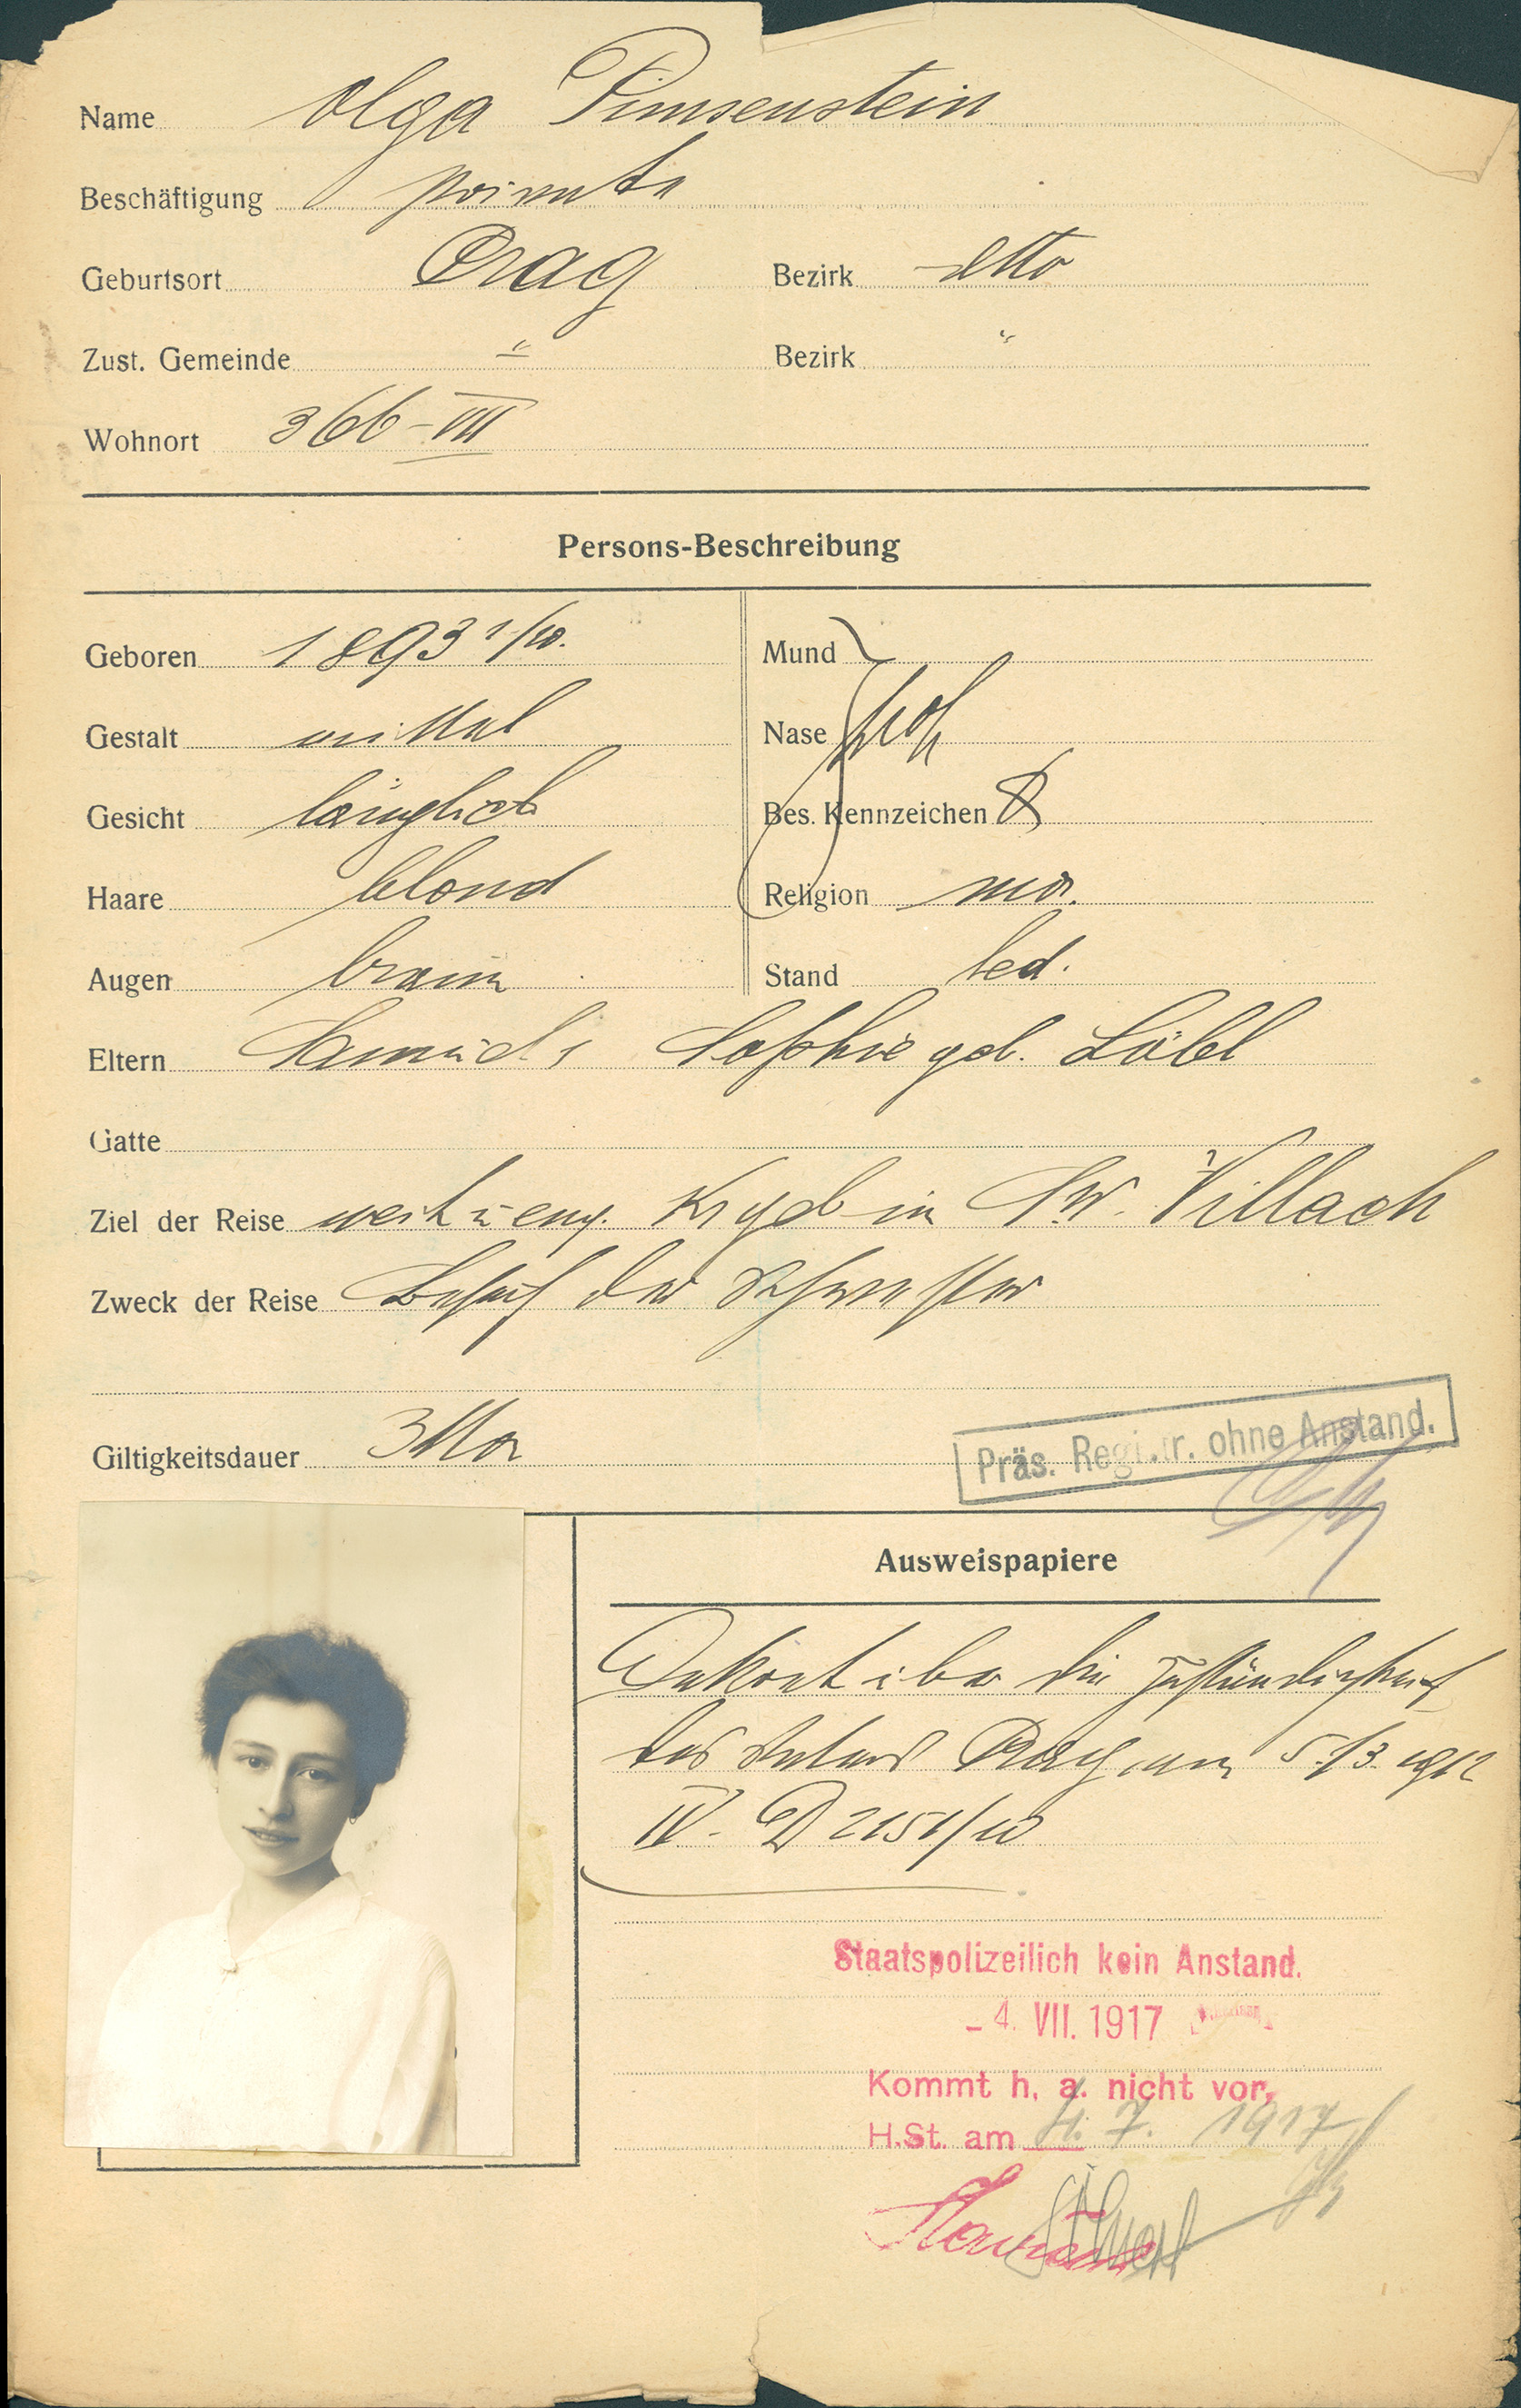 Name Olga Pimsenstein
Beschäftigung private
Geburtsort Prag Bezirk dtto
Zust. Gemeinde " Bezirk "
Wohnort 366-VII
Persons-Beschreibung
Geboren 1893 1/10. Mund
Gestalt mittel Nase prop
Gesicht länglich Bes. Kennzeichen
Haare blond Religion mos.
Augen braun Stand led.
Eltern Samuel, Sophie geb. Löbl
Gatte
Ziel der Reise weit. u. eng. Krgeb in Villach
Zweck der Reise Besuch der Schwester
Giltigkeitsdauer 3 Mon
Präs. Registr. ohne Anstand.
Ausweispapiere
Dekret über die Zuständigkeit
des Vaters Prag vom 5./3. 1912
IV. D 2151/10
Staatspolizeilich kein Anstand.
- 4. VII. 1917
Kommt h. a. nicht vor,
H.St. am 4. 7. 1917